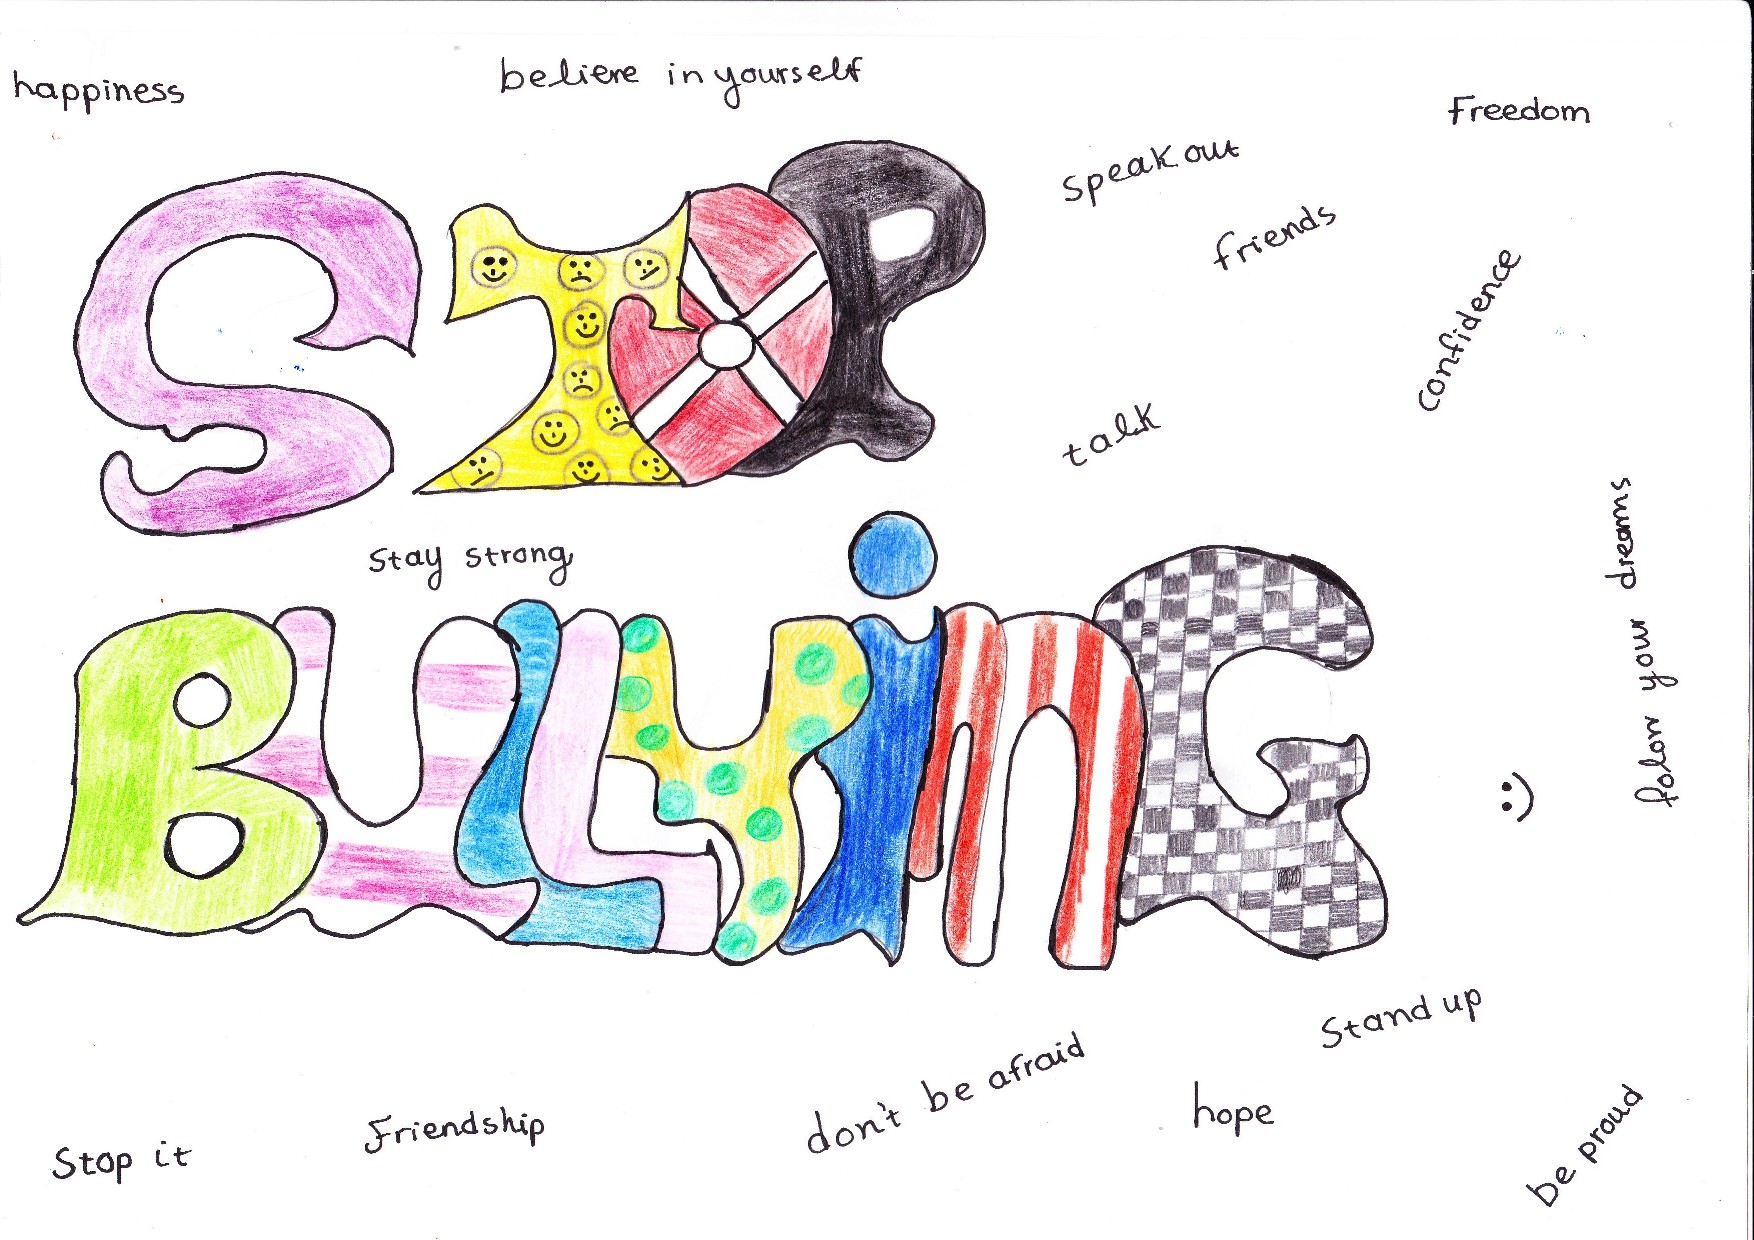 happiness
believe in yourself
Freedom
Speak out
friends
confidence
STOP
talk
Stay strong
folow your dreams
BULLYiNG
:)
Stand up
don't be afraid
hope
Friendship
Stop it
be proud